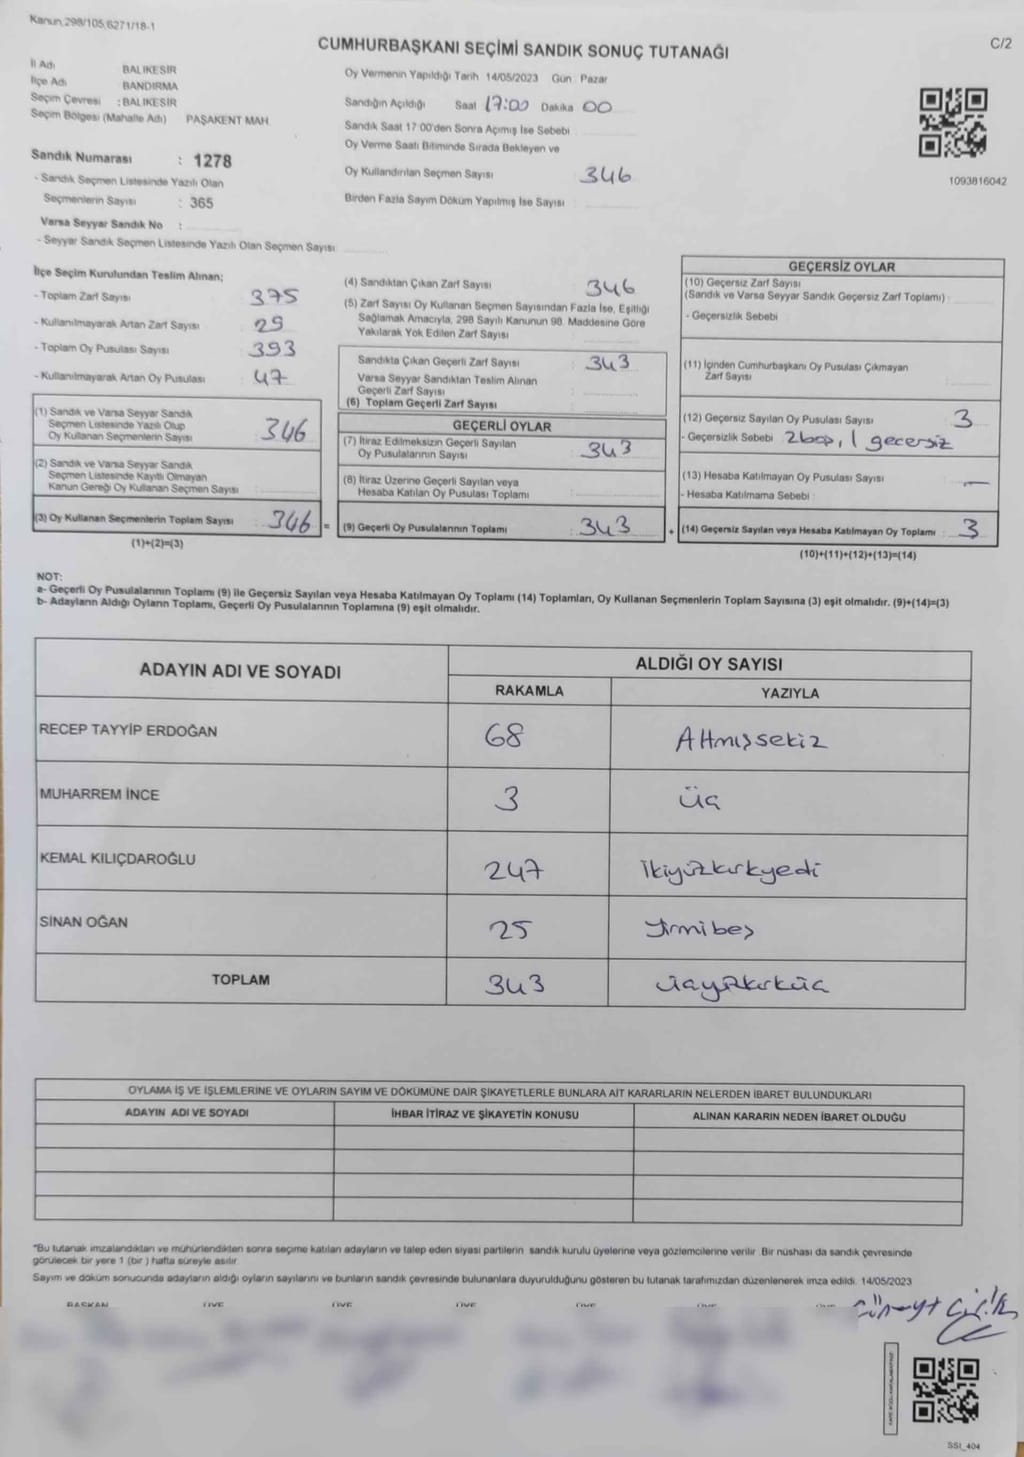 Kanun,298/105,6271/18-1
C/2
CUMHURBAŞKANI SEÇİMİ SANDIK SONUÇ TUTANAĞI
İl Adı BALIKESİR
İlçe Adı BANDIRMA
Seçim Çevresi : BALIKESİR
Seçim Bölgesi (Mahalle Adı) PAŞAKENT MAH.
Sandık Numarası : 1278
- Sandık Seçmen Listesinde Yazılı Olan
Seçmenlerin Sayısı : 365
Varsa Seyyar Sandık No :
- Seyyar Sandık Seçmen Listesinde Yazılı Olan Seçmen Sayısı
Oy Vermenin Yapıldığı Tarih 14/05/2023 Gün : Pazar
Sandığın Açıldığı Saat 17:00 Dakika 00
Sandık Saat 17:00'den Sonra Açımış İse Sebebi
Oy Verme Saati Bitiminde Sırada Bekleyen ve
Oy Kullandırılan Seçmen Sayısı 346
Birden Fazla Sayım Döküm Yapılmış İse Sayısı
1093816042
İlçe Seçim Kurulundan Teslim Alınan;
- Toplam Zarf Sayısı 375
- Kullanılmayarak Artan Zarf Sayısı : 29
- Toplam Oy Pusulası Sayısı : 393
- Kullanılmayarak Artan Oy Pusulası : 47
(1) Sandık ve Varsa Seyyar Sandık
Seçmen Listesinde Yazılı Olup
Oy Kullanan Seçmenlerin Sayısı 346
(2) Sandık ve Varsa Seyyar Sandık
Seçmen Listesinde Kayıtlı Olmayan
Kanun Gereği Oy Kullanan Seçmen Sayısı
(3) Oy Kullanan Seçmenlerin Toplam Sayısı : 346 =
(1)+(2)=(3)
(4) Sandıktan Çıkan Zarf Sayısı 346
(5) Zarf Sayısı Oy Kullanan Seçmen Sayısından Fazla İse, Eşitliği
Sağlamak Amacıyla, 298 Sayılı Kanunun 98. Maddesine Göre
Yakılarak Yok Edilen Zarf Sayısı
Sandıkta Çıkan Geçerli Zarf Sayısı : 343
Varsa Seyyar Sandıktan Teslim Alınan
Geçerli Zarf Sayısı
(6) Toplam Geçerli Zarf Sayısı
GEÇERLİ OYLAR
(7) İtiraz Edilmeksizin Geçerli Sayılan
Oy Pusulalarının Sayısı : 343
(8) İtiraz Üzerine Geçerli Sayılan veya
Hesaba Katılan Oy Pusulası Toplamı
(9) Geçerli Oy Pusulalarının Toplamı : 343 +
GEÇERSİZ OYLAR
(10) Geçersiz Zarf Sayısı
(Sandık ve Varsa Seyyar Sandık Geçersiz Zarf Toplamı) :
- Geçersizlik Sebebi
(11) İçinden Cumhurbaşkanı Oy Pusulası Çıkmayan
Zarf Sayısı
(12) Geçersiz Sayılan Oy Pusulası Sayısı : 3
- Geçersizlik Sebebi : 2boş, 1 geçersiz
(13) Hesaba Katılmayan Oy Pusulası Sayısı : —
- Hesaba Katılmama Sebebi :
(14) Geçersiz Sayılan veya Hesaba Katılmayan Oy Toplamı : 3
(10)+(11)+(12)+(13)=(14)
NOT:
a- Geçerli Oy Pusulalarının Toplamı (9) ile Geçersiz Sayılan veya Hesaba Katılmayan Oy Toplamı (14) Toplamları, Oy Kullanan Seçmenlerin Toplam Sayısına (3) eşit olmalıdır. (9)+(14)=(3)
b- Adayların Aldığı Oyların Toplamı, Geçerli Oy Pusulalarının Toplamına (9) eşit olmalıdır.
ADAYIN ADI VE SOYADI ALDIĞI OY SAYISI
RAKAMLA YAZIYLA
RECEP TAYYİP ERDOĞAN 68 Altmışsekiz
MUHARREM İNCE 3 Üç
KEMAL KILIÇDAROĞLU 247 İkiyüzkırkyedi
SİNAN OĞAN 25 Yirmibeş
TOPLAM 343 üçyüzkırküç
OYLAMA İŞ VE İŞLEMLERİNE VE OYLARIN SAYIM VE DÖKÜMÜNE DAİR ŞİKAYETLERLE BUNLARA AİT KARARLARIN NELERDEN İBARET BULUNDUKLARI
ADAYIN ADI VE SOYADI İHBAR İTİRAZ VE ŞİKAYETİN KONUSU ALINAN KARARIN NEDEN İBARET OLDUĞU
*Bu tutanak imzalandıktan ve mühürlendikten sonra seçime katılan adayların ve talep eden siyasi partilerin sandık kurulu üyelerine veya gözlemcilerine verilir. Bir nüshası da sandık çevresinde
görülecek bir yere 1 (bir) hafta süreyle asılır.
Sayım ve döküm sonucunda adayların aldığı oyların sayılarını ve bunların sandık çevresinde bulunanlara duyurulduğunu gösteren bu tutanak tarafımızdan düzenlenerek imza edildi. 14/05/2023
BAŞKAN ÜYE ÜYE ÜYE ÜYE ÜYE ÜYE
SSI_404